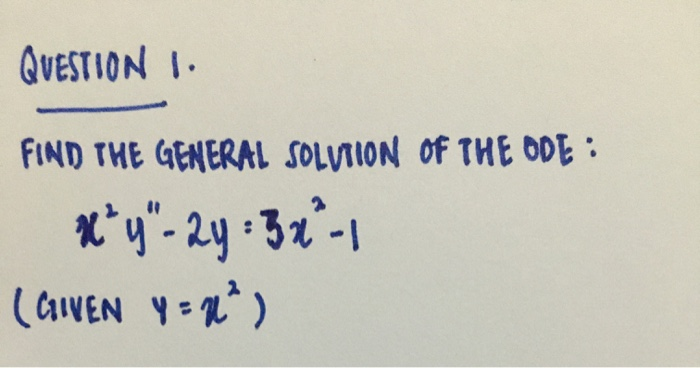 QUESTION 1.
FIND THE GENERAL SOLUTION OF THE ODE :
x²y" - 2y = 3x² - 1
(GIVEN y = x²)